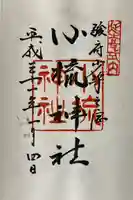 延喜式内
駿府少将
小梳神社
平成三十一年一月四日